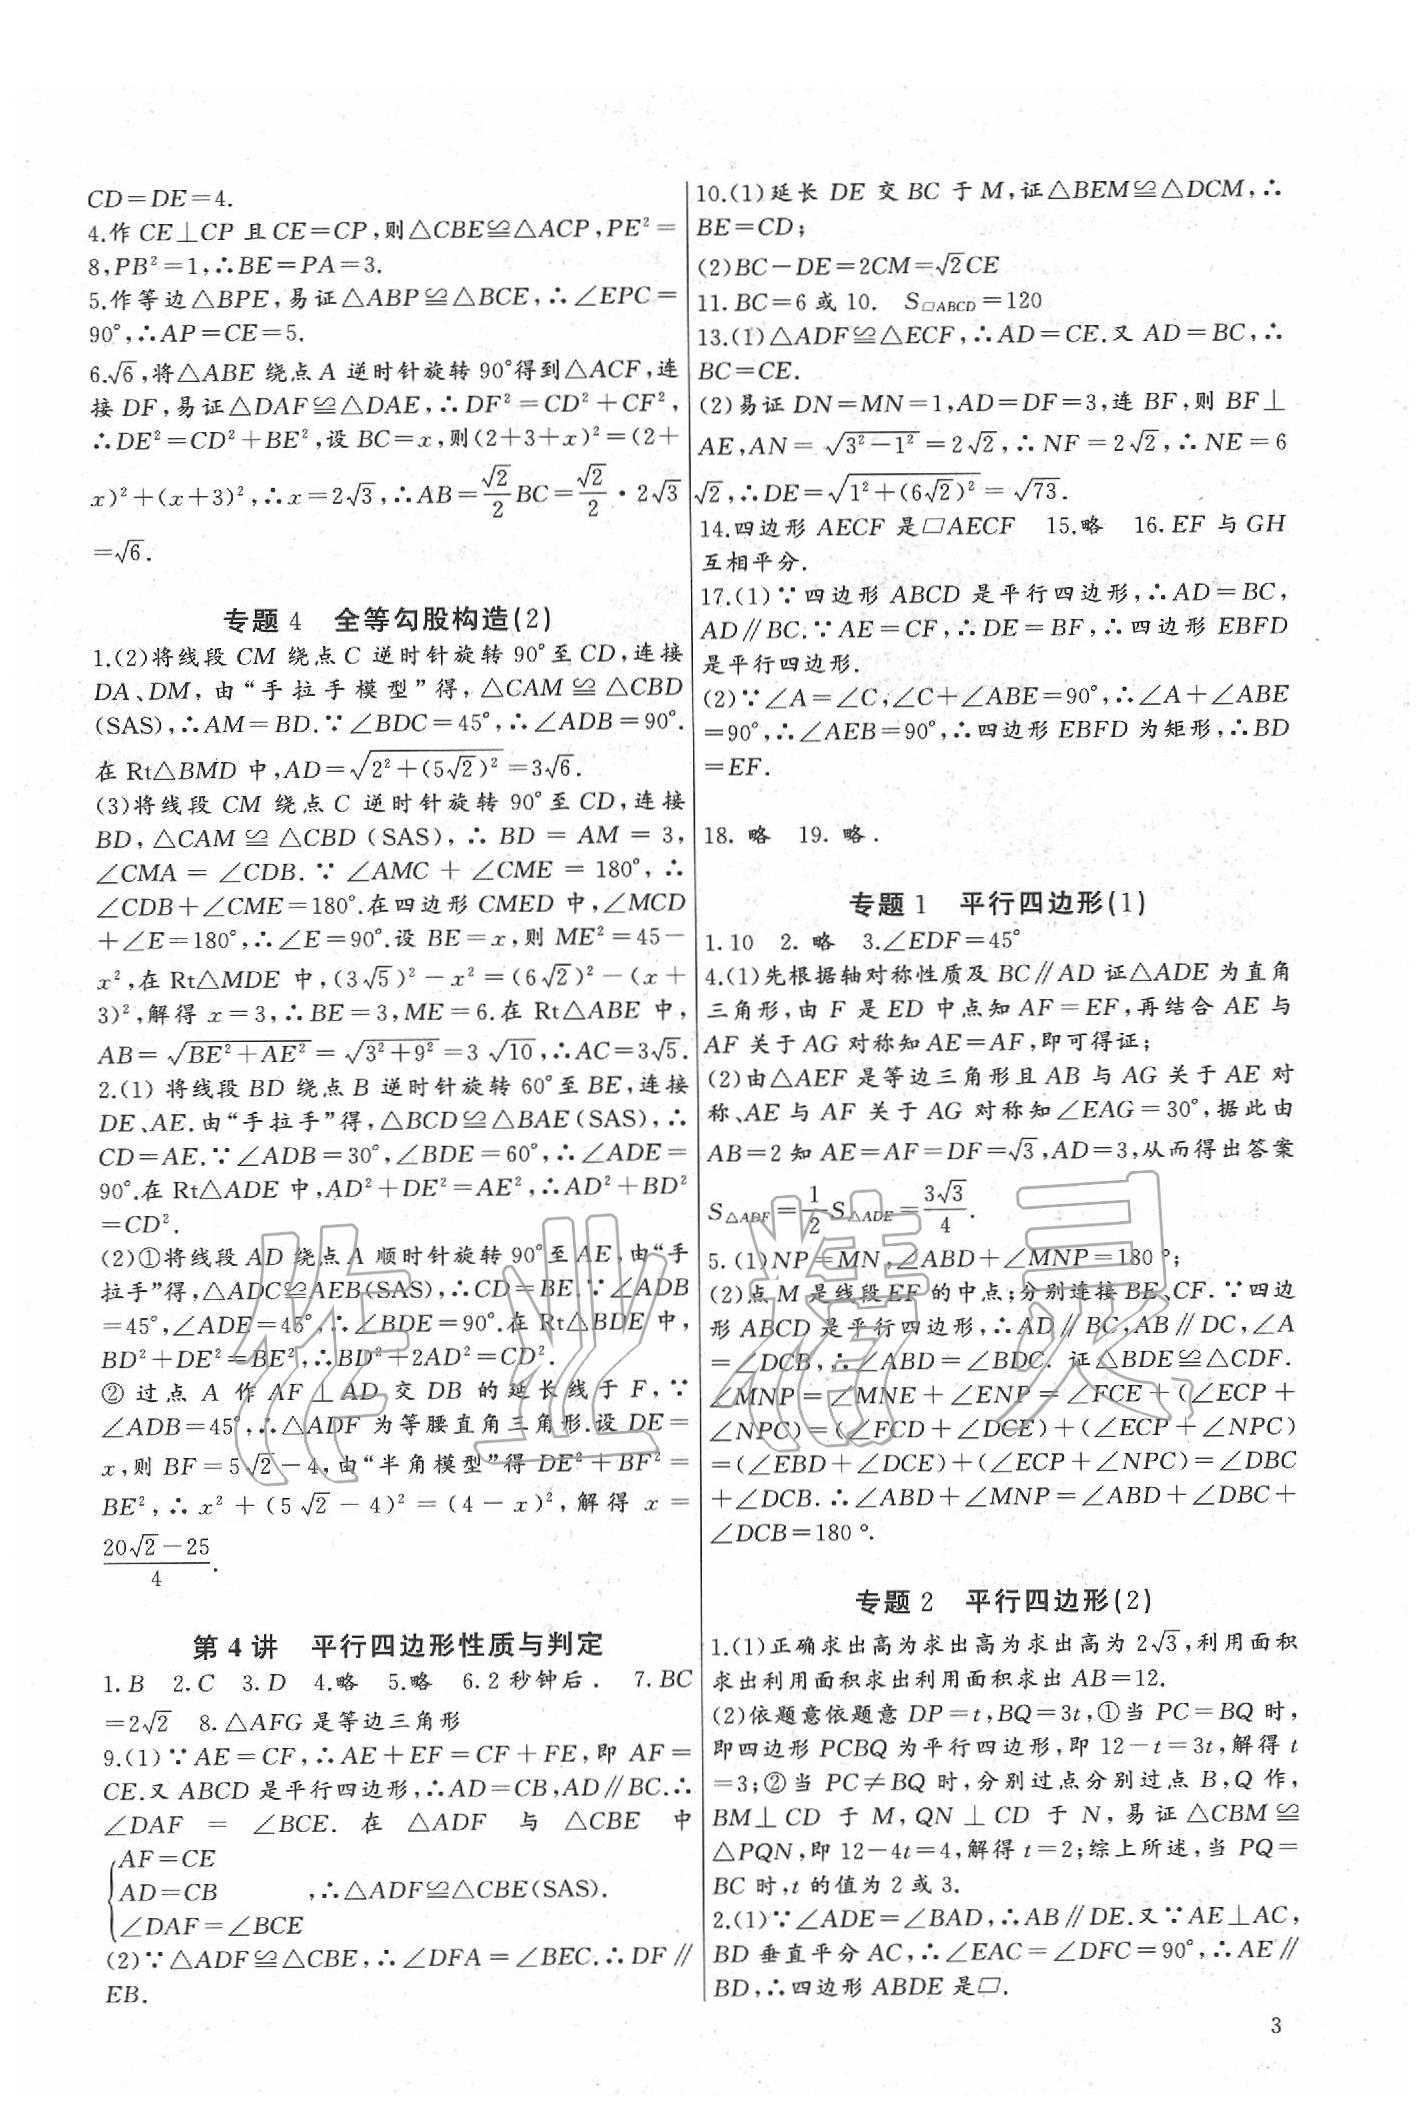 CD=DE=4.
4.作 CE⊥CP 且CE=CP,则△CBE≌△ACP,PE²=
8,PB²=1,∴BE=PA=3.
5.作等边△BPE,易证△ABP≌△BCE,∴∠EPC=
90°,∴AP=CE=5.
6.√6,将△ABE 绕点 A 逆时针旋转 90°得到△ACF,连
接 DF,易证△DAF≌△DAE,∴DF²=CD²+CF²,
∴DE²=CD²+BE²,设 BC=x,则(2+3+x)²=(2+
x)²+(x+3)²,∴x=2√3,∴AB=√2/2 BC=√2/2·2√3
=√6.
专题 4 全等勾股构造(2)
1.(2)将线段 CM 绕点 C 逆时针旋转 90°至CD,连接
DA、DM,由“手拉手模型”得,△CAM≌△CBD
(SAS),∴AM=BD.∵∠BDC=45°,∴∠ADB=90°.
在 Rt△BMD 中,AD=√(2²+(5√2)²)=3√6.
(3)将线段 CM 绕点 C 逆时针旋转 90°至 CD,连接
BD,△CAM≌△CBD(SAS),∴BD=AM=3,
∠CMA=∠CDB.∵∠AMC+∠CME=180°,∴
∠CDB+∠CME=180°.在四边形 CMED 中,∠MCD
+∠E=180°,∴∠E=90°.设 BE=x,则 ME²=45-
x²,在 Rt△MDE 中,(3√5)²-x²=(6√2)²-(x+
3)²,解得 x=3,∴BE=3,ME=6.在 Rt△ABE 中,
AB=√(BE²+AE²)=√(3²+9²)=3√10,∴AC=3√5.
2.(1) 将线段 BD 绕点 B 逆时针旋转 60°至BE,连接
DE、AE.由“手拉手”得,△BCD≌△BAE(SAS),∴
CD=AE.∵∠ADB=30°,∠BDE=60°,∴∠ADE=
90°.在 Rt△ADE 中,AD²+DE²=AE²,∴AD²+BD²
=CD².
(2)①将线段 AD 绕点A 顺时针旋转 90°至AE,由“手
拉手”得,△ADC≌AEB(SAS),∴CD=BE.∵∠ADB
=45°,∠ADE=45°,∴∠BDE=90°.在 Rt△BDE 中,
BD²+DE²=BE²,∴BD²+2AD²=CD².
② 过点 A 作 AF⊥AD 交 DB 的延长线于 F,∵
∠ADB=45°,∴△ADF 为等腰直角三角形.设 DE=
x,则 BF=5√2-4,由“半角模型”得 DE²+BF²=
BE²,∴x²+(5√2-4)²=(4-x)²,解得 x=
(20√2-25)/4.
第 4 讲 平行四边形性质与判定
1.B 2.C 3.D 4.略 5.略 6.2 秒钟后. 7.BC
=2√2 8.△AFG 是等边三角形
9.(1)∵AE=CF,∴AE+EF=CF+FE,即 AF=
CE.又 ABCD 是平行四边形,∴AD=CB,AD∥BC.∴
∠DAF = ∠BCE. 在 △ADF 与 △CBE 中
AF=CE
AD=CB ,∴△ADF≌△CBE(SAS).
∠DAF=∠BCE
(2)∵△ADF≌△CBE,∴∠DFA=∠BEC.∴DF∥
EB.
10.(1)延长 DE 交 BC 于 M,证△BEM≌△DCM,∴
BE=CD;
(2)BC-DE=2CM=√2CE
11.BC=6 或 10. S□ABCD=120
13.(1)△ADF≌△ECF,∴AD=CE.又 AD=BC,∴
BC=CE.
(2)易证 DN=MN=1,AD=DF=3,连 BF,则 BF⊥
AE,AN=√(3²-1²)=2√2,∴NF=2√2,∴NE=6
√2,∴DE=√(1²+(6√2)²)=√73.
14.四边形 AECF 是□AECF 15.略 16.EF 与 GH
互相平分.
17.(1)∵四边形 ABCD 是平行四边形,∴AD=BC,
AD∥BC.∵AE=CF,∴DE=BF,∴四边形 EBFD
是平行四边形.
(2)∵∠A=∠C,∠C+∠ABE=90°,∴∠A+∠ABE
=90°,∴∠AEB=90°,∴四边形 EBFD 为矩形,∴BD
=EF.
18. 略 19. 略.
专题 1 平行四边形(1)
1.10 2. 略 3.∠EDF=45°
4.(1)先根据轴对称性质及 BC∥AD 证△ADE 为直角
三角形,由 F 是 ED 中点知 AF=EF,再结合 AE 与
AF 关于 AG 对称知 AE=AF,即可得证;
(2)由△AEF 是等边三角形且 AB 与 AG 关于 AE 对
称、AE 与 AF 关于 AG 对称知∠EAG=30°,据此由
AB=2 知 AE=AF=DF=√3,AD=3,从而得出答案
S△ADF=1/2 S△ADE=3√3/4.
5.(1)NP=MN,∠ABD+∠MNP=180°;
(2)点 M 是线段 EF 的中点;分别连接 BE、CF.∵四边
形 ABCD 是平行四边形,∴AD∥BC,AB∥DC,∠A
=∠DCB,∴∠ABD=∠BDC. 证△BDE≌△CDF.
∠MNP=∠MNE+∠ENP=∠FCE+(∠ECP+
∠NPC)=(∠FCD+∠DCE)+(∠ECP+∠NPC)
=(∠EBD+∠DCE)+(∠ECP+∠NPC)=∠DBC
+∠DCB.∴∠ABD+∠MNP=∠ABD+∠DBC+
∠DCB=180°.
专题 2 平行四边形(2)
1.(1)正确求出高为求出高为求出高为 2√3,利用面积
求出利用面积求出利用面积求出 AB=12.
(2)依题意依题意 DP=t,BQ=3t,①当 PC=BQ 时,
即四边形 PCBQ 为平行四边形,即 12-t=3t,解得 t
=3;②当 PC≠BQ 时,分别过点分别过点 B,Q 作,
BM⊥CD 于 M,QN⊥CD 于 N,易证△CBM≌
△PQN,即 12-4t=4,解得 t=2;综上所述,当 PQ=
BC 时,t 的值为 2 或 3.
2.(1)∵∠ADE=∠BAD,∴AB∥DE.又∵AE⊥AC,
BD 垂直平分 AC,∴∠EAC=∠DFC=90°,∴AE∥
BD,∴四边形 ABDE 是□.
3
作业精灵